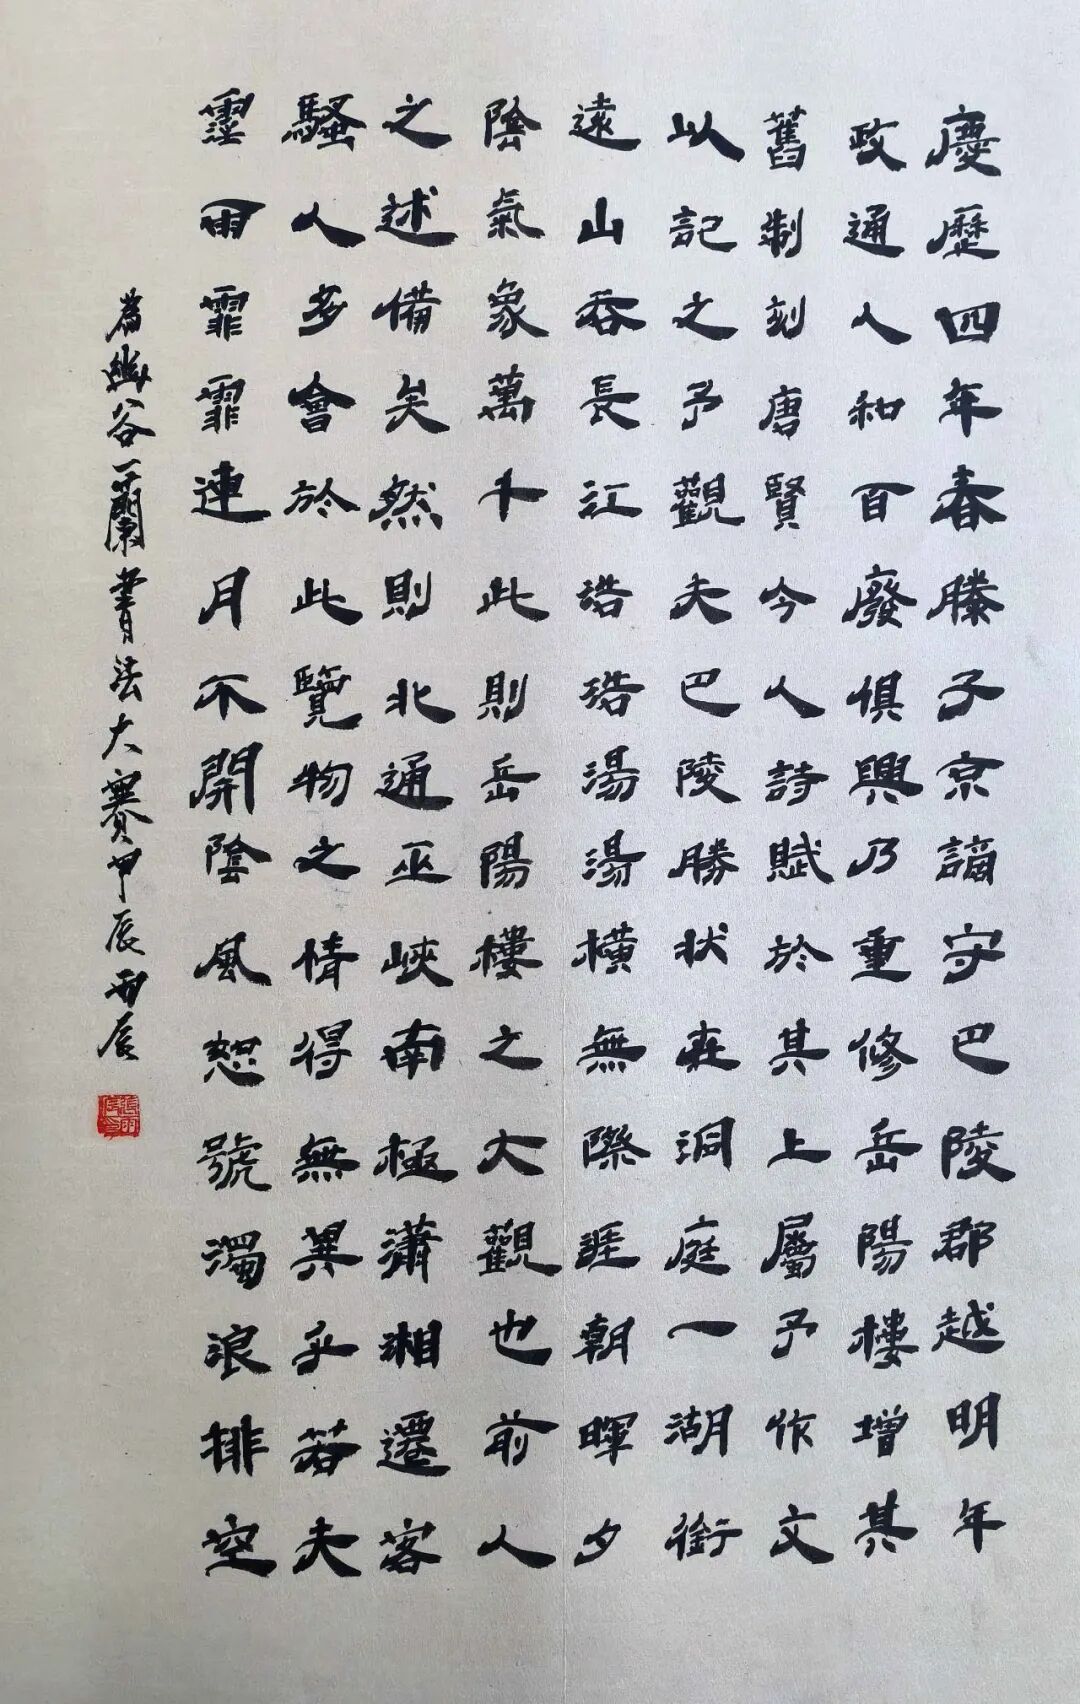 慶歷四年春滕子京謫守巴陵郡越明年
政通人和百廢俱興乃重修岳陽樓增其
舊制刻唐賢今人詩賦於其上屬予作文
以記之予觀夫巴陵勝狀在洞庭一湖銜
遠山吞長江浩浩湯湯橫無際涯朝暉夕
陰氣象萬千此則岳陽樓之大觀也前人
之述備矣然則北通巫峽南極瀟湘遷客
騷人多會於此覽物之情得無異乎若夫
霪雨霏霏連月不開陰風怒號濁浪排空
為幽谷一蘭書法大賽甲辰雨辰